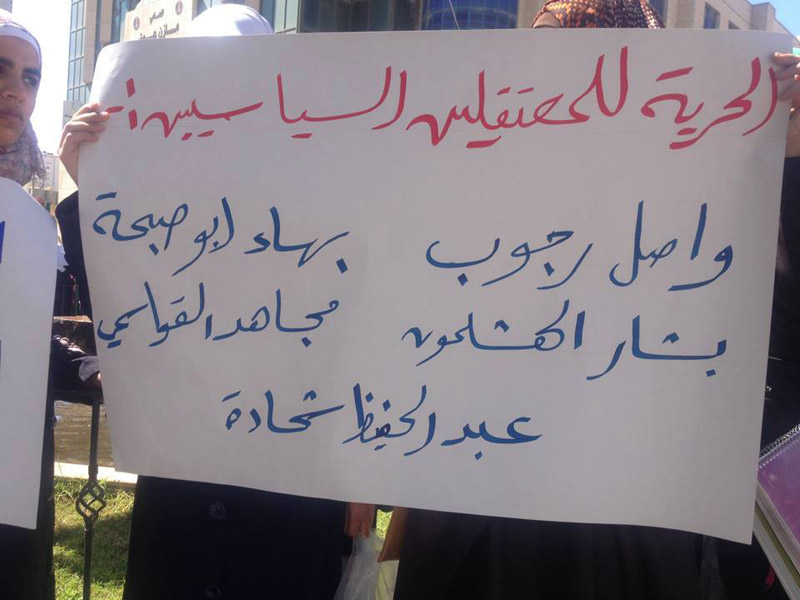 الحرية للمعتقلين السياسيين :-
واصل رجوب بهاء ابو صبحة
بشار الهشلمون مجاهد القواسمي
عبد الحفيظ شحادة